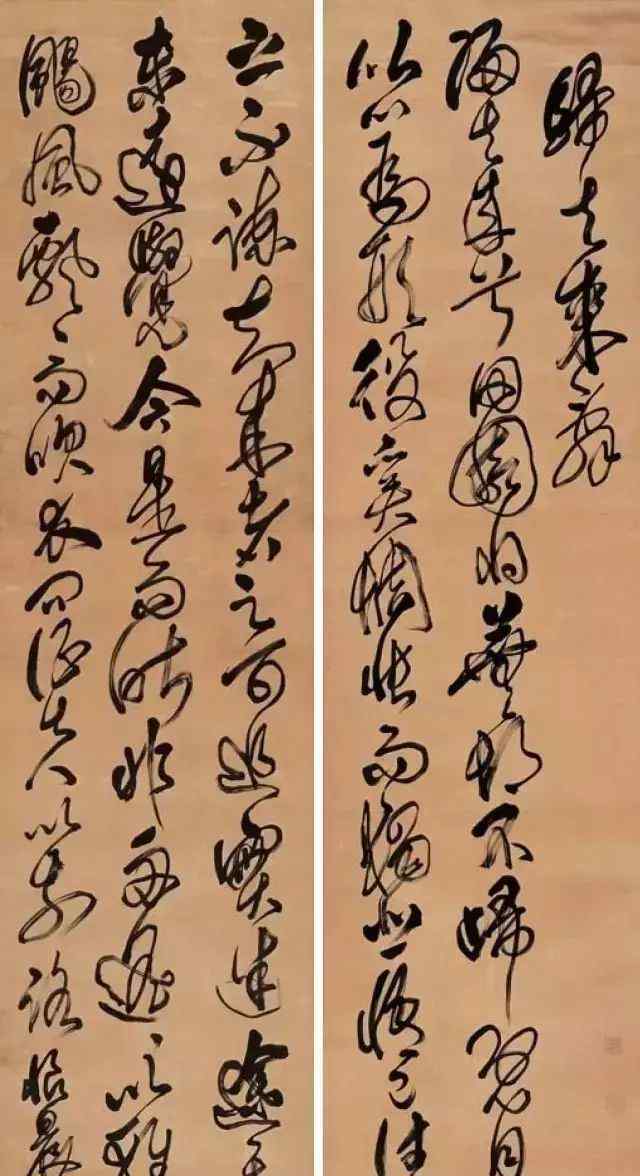 歸去來辭
歸去來兮田園將蕪胡不歸既自
以心為形役奚惆悵而獨悲悟已往
之不諫知來者之可追實迷途其
未遠覺今是而昨非舟遙遙以輕
颺風飄飄而吹衣問征夫以前路恨晨